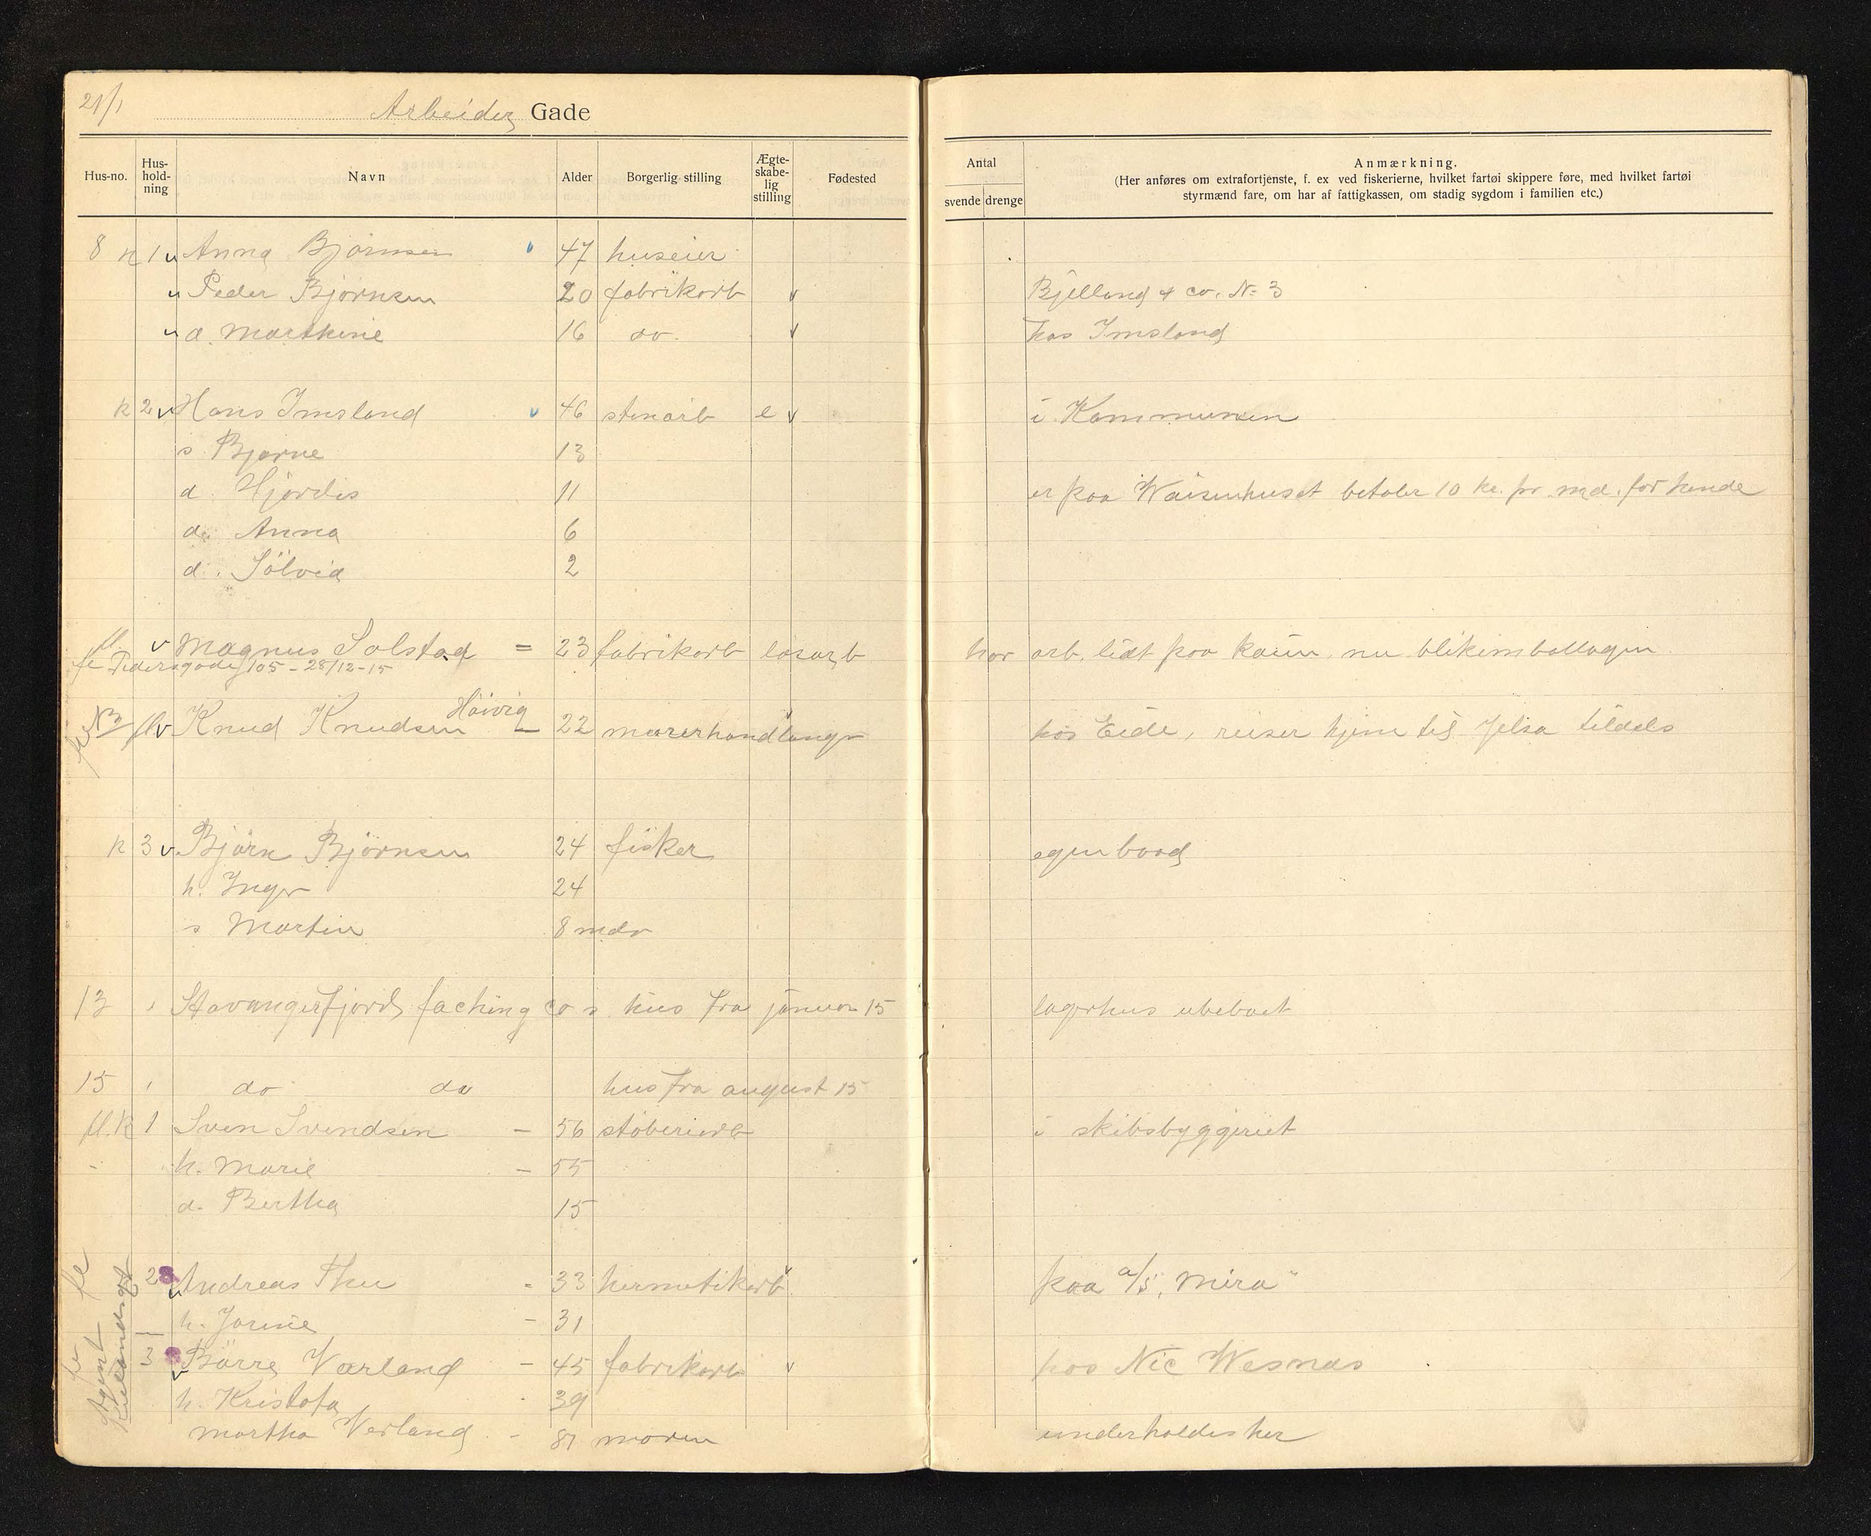 21/1
Arbeider Gade
Hus-no. Hus-hold-ning Navn Alder Borgerlig stilling Ægte-skabe-lig stilling Fødested
Antal svende drenge Anmærkning.
(Her anføres om extrafortjenste, f. ex ved fiskerierne, hvilket fartøi skippere føre, med hvilket fartøi
styrmænd fare, om har af fattigkassen, om stadig sygdom i familien etc.)
8 k 1 v Anna Bjørnsen 47 huseier
v Peder Bjørnsen 20 fabrikarb v Bjelland & co. No 3
v d. Marthine 16 do. v hos Imsland
k 2 v Hans Imsland v 46 stenarb e v i Kommunen
s Bjarne 13
d. Hjørdis 11 er paa Waisenhuset betaler 10 kr. pr. md. for hende
d. Anna 6
d. Sölvid 2
fl v Magnus Solstad = 23 fabrikarb løsarb har arb. lidt paa kaien, nu blikemballagen
fl Pedersgade 105 - 28/12-15
N3 fl v Knud Knudsen Höivig 22 murerhandlanger hos Eide, reiser hjem til Jelsa tildels
k 3 v Björn Björnsen 24 fisker egen baad
h. Inger 24
s Martin 8 mdr
13 Stavangerfjord packing co s. hus fra januar 15 lagerhus ubeboet
15 do do hus fra august 15
fl. k 1 Sven Svendsen - 56 støberiarb i skibsbyggeriet
h. Marie - 55
d. Bertha 15
2 v Andreas Thu - 33 hermetikarb v paa a/s "Mira"
h. Jorine - 31
3 v Börre Værland - 45 fabrikarb v hos Nic Wesnæs
h. Kristofa 39
Martha Verland - 81 moren underholdes her